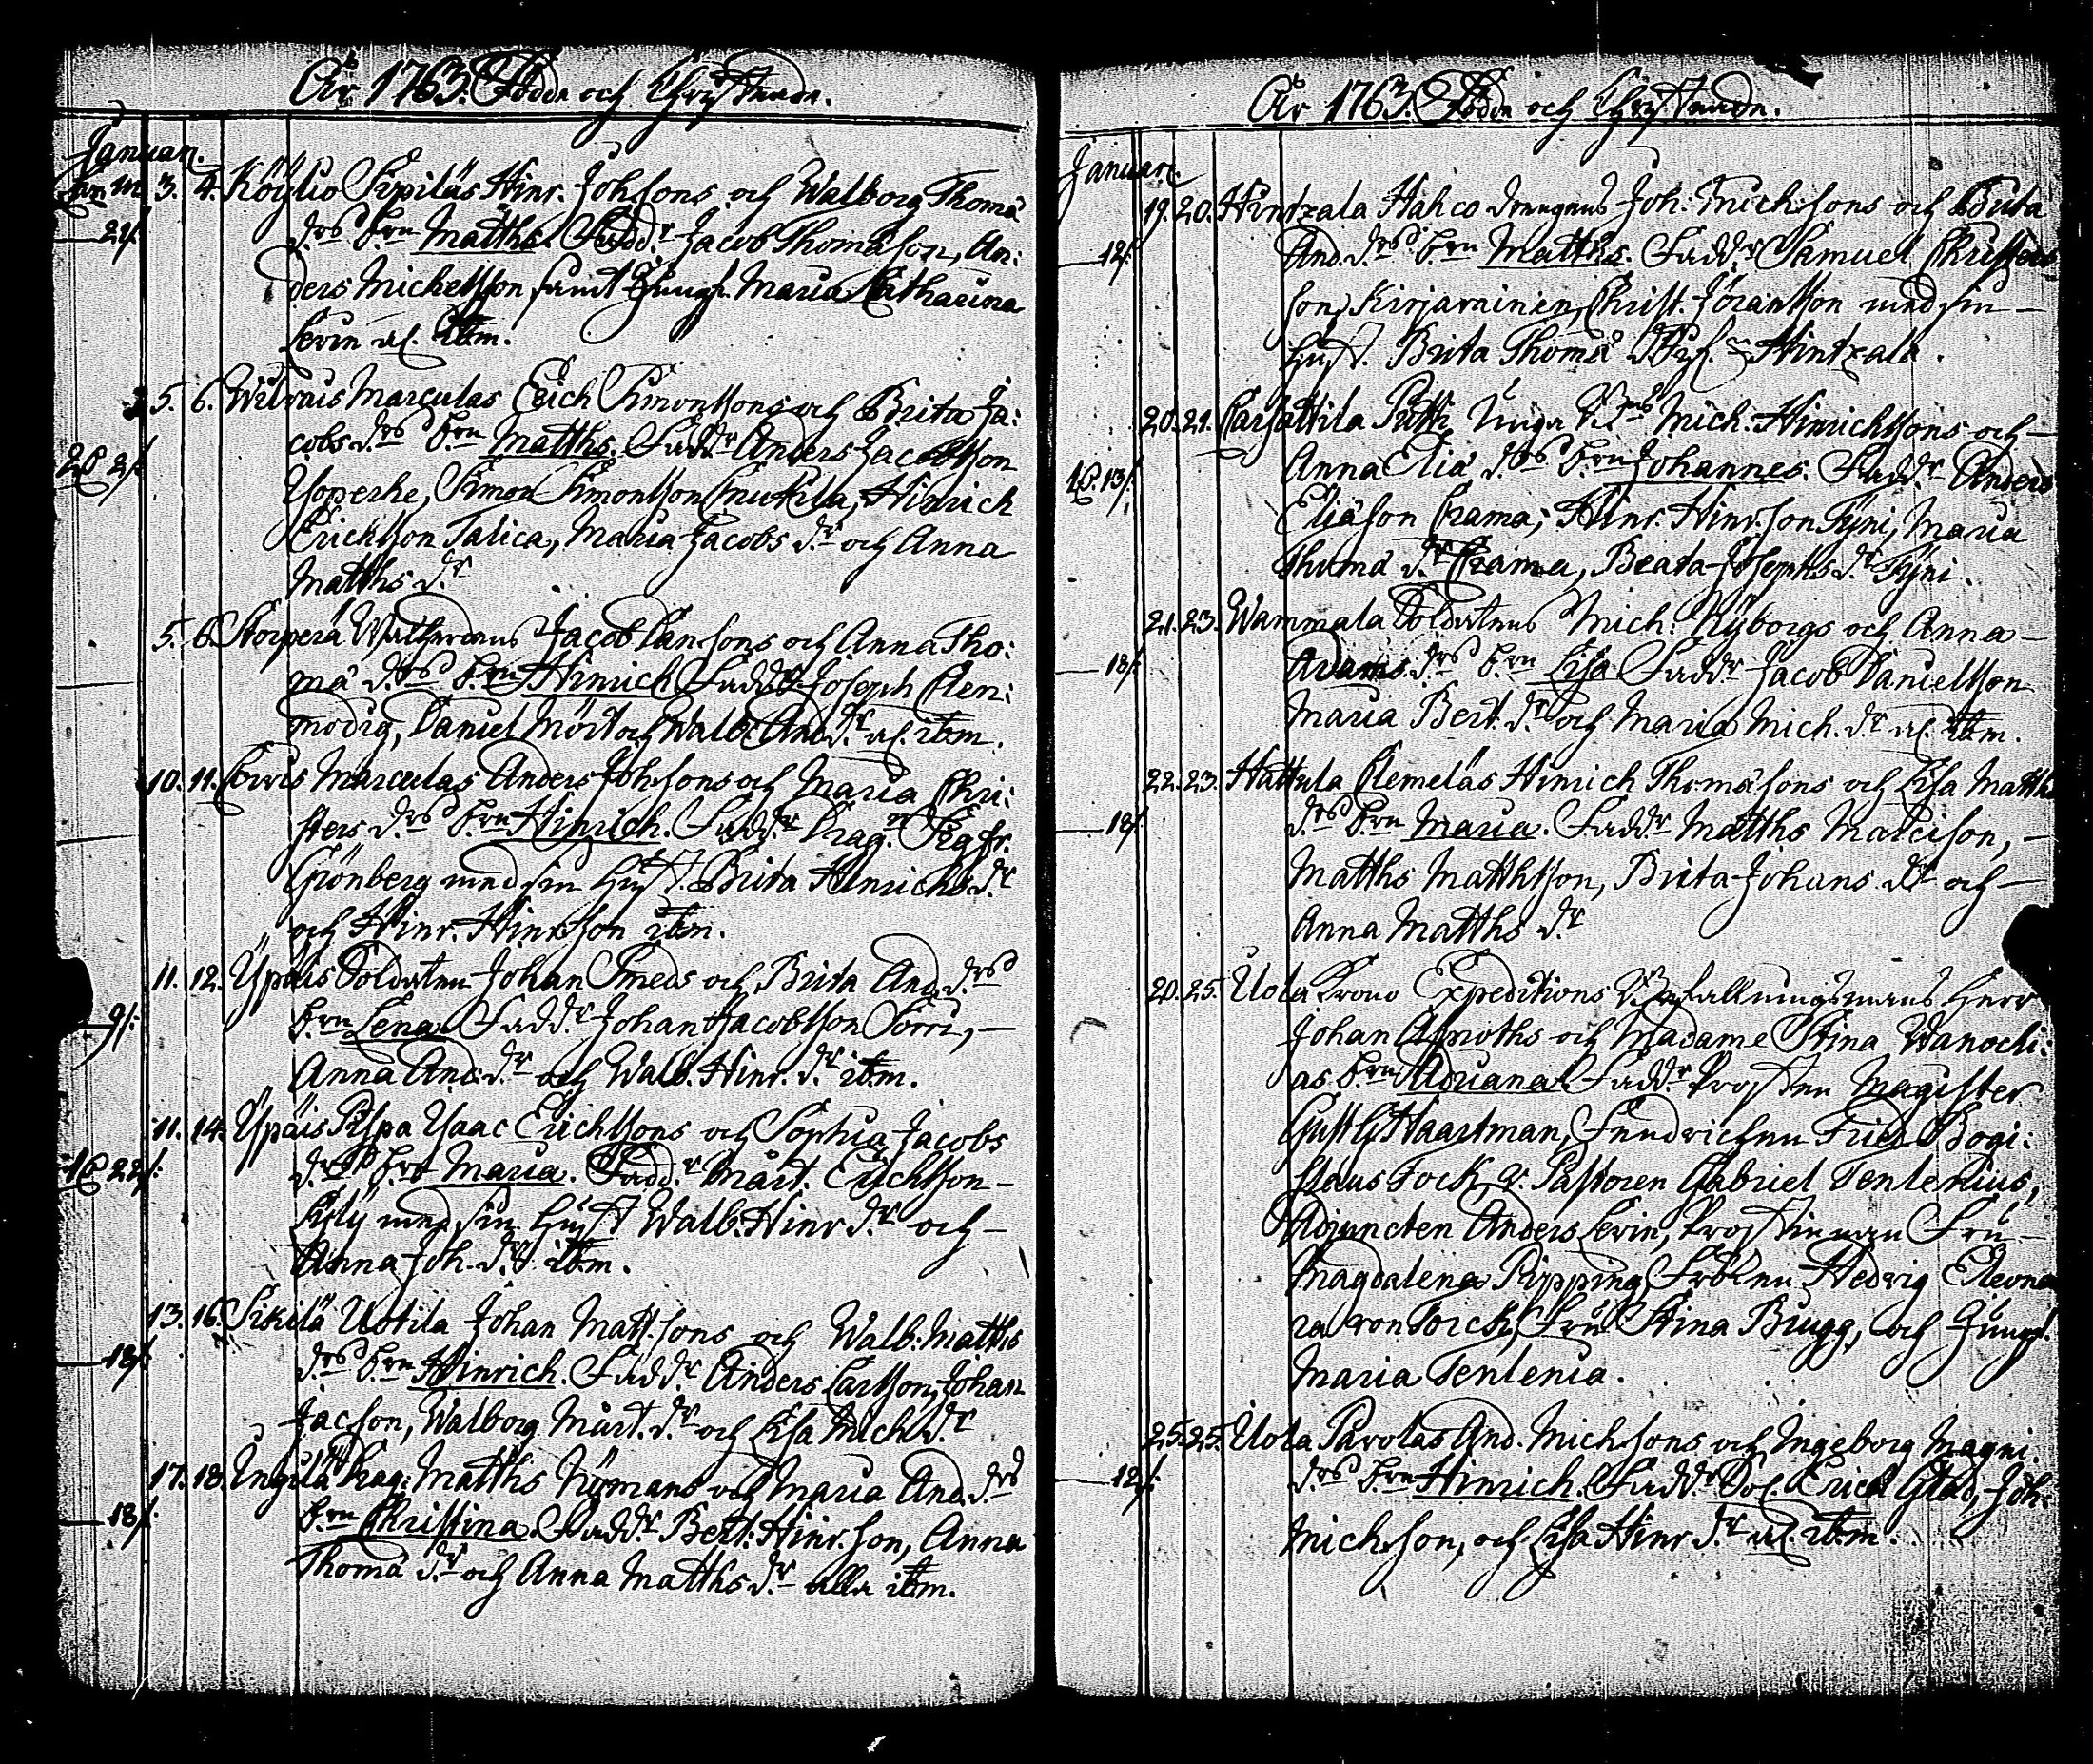 År 1763. Födde och Christnade.
Januari.
3. 4. Köylio Sipiläs Hinr. Johssons och Walborg Thomæ
21/. drs brn Matths. Fadd:r Jacob Thomæson, An:
ders Michelsson samt Jungf. Maria Catharina
Levin al. ibm.
5. 6. Wilvais Marculas Erich Simonssons och Brita Ja:
cobs drs brn Matths. Faddr Anders Jacobsson
Simon Simonsson Hinrich
Erichsson Talica, Maria Jacobs dr och Anna
Matths dr
5. 6. Storperä Jacob Danssons och Anna Tho:
mæ drs brn Hinrich Faddr Joseph Clen:
modig, Daniel Mört och Walb. And. dr al. ibm.
10. 11. Marculas Anders Johssons och Maria Chri:
sters drs brn Hinrich. Faddr
Grönberg med sin hust. Brita Hinrichs dr
och Hinr. Hinrsson ibm.
11. 12. Ypäis Soldaten Johan Smeds och Brita And. drs
9/: brn Lena. Faddr Johan Jacobsson Sorri,
Anna And. dr och Walb. Hinr. dr ibm.
11. 14. Ypäis Pispa Isaac Erichssons och Sophia Jacobs
22/: drs brn Maria. Faddr Mårt. Erichsson
med sin hust Walb. Hinr dr och
Anna Joh. dr ibm.
13. 16. Sikilä Uotila Johan Matt.sons och Walb. Matths
18/. drs brn Hinrich. Faddr Anders Larsson, Johan
Jacson, Walborg Mårt. dr och Lisa Mich. dr
17. 18. Ungila Drag. Matths Nymans och Maria And. drs
18/. brn Christina. Faddr Bert. Hinr.son, Anna
Thomæ dr och Anna Matths dr alla ibm.
År 1763. Födde och Christnade.
Januari
19. 20. Hintzala Hahco drängens Joh. Erich:sons och Brita
12/. And. drs brn Matths. Faddr Samuel Christers
son Kirjavainen, Christ. Jöransson med sin
hust. Brita Thomæ dr Hintzala.
20. 21. Carsattila Mich. Hinrichssons och
13/. Anna Eliæ drs brn Johannes. Faddr Anders
Eliæson Crama, Hinr. Hinr.son Tyni, Maria
Thomæ dr Crama, Beata Josephs dr Tyni.
21. 23. Wammala Soldatens Mich. Nyborgs och Anna
18/. Adams drs brn Lisa. Faddr Jacob Danielsson
Maria Bert. dr och Maria Mich. dr al. ibm.
22. 23. Hattula Clemeläs Hinrich Thomæsons och Lisa Matths
18/. drs brn Maria. Faddr Matths Marcison,
Matths Matthsson, Brita Johans dr och
Anna Matths dr
20. 25. Uola Crono Expeditions Befallningsmans Herr
Johan och Madame Stina Wanochi:
as brn Adriana. Faddr Prosten Magister
Gust. G. Haartman, Fendrichen Fried. Bogi:
slaus Fock, v. Pastoren Gabriel Tenlenius,
Adjuncten Anders Levin, Prostinnan Fru
Magdalena Pipping, Fröken Hedvig Eleono
ra von Torck, Fru Stina Brugg, och Jungf.
Maria Tenlenia.
25. 25. Uola Parolas And. Michssons och Ingeborg Magni
12/. drs brn Hinrich. Faddr Sol. Erich Glad, Joh.
Michsson, och Lisa Hinr. dr al. ibm.